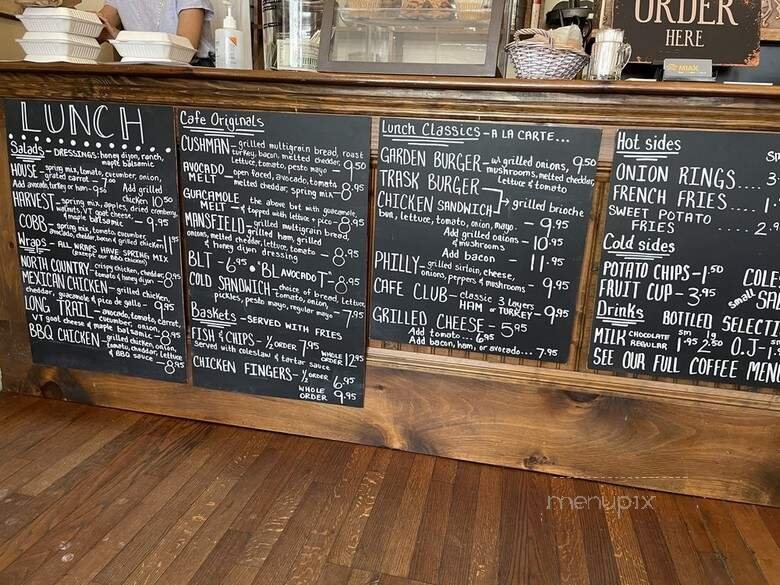 ORDER
HERE
LUNCH
Salads - DRESSINGS: honey dijon, ranch,
maple balsamic
HOUSE - spring mix, tomato, cucumber, onion,
grated carrot - 7.00
Add avocado, turkey or ham - 9.50 Add grilled
chicken 10.50
HARVEST - spring mix, apples, dried cranberry,
walnuts, VT goat cheese
& maple balsamic - 9.95
COBB - spring mix, tomato, cucumber,
avocado, cheddar, bacon & grilled chicken 11.95
Wraps - ALL WRAPS HAVE SPRING MIX
(except our bbq chicken)
NORTH COUNTRY - crispy chicken, cheddar,
tomato & honey dijon - 8.95
MEXICAN CHICKEN - grilled chicken,
cheddar, guacamole & pico de gallo - 9.95
LONG TRAIL - avocado, tomato, carrot,
cucumber, onion,
VT goat cheese & maple balsamic - 8.95
BBQ CHICKEN - grilled chicken, onion,
tomato, cheddar, lettuce
& BBQ sauce - 8.95
Cafe Originals
CUSHMAN - grilled multigrain bread, roast
turkey, bacon, melted cheddar,
lettuce, tomato, pesto mayo - 9.50
AVOCADO MELT - open faced, avocado, tomato
melted cheddar, spring mix - 8.95
GUACAMOLE MELT - the above but with guacamole,
& topped with lettuce & pico - 8.95
MANSFIELD - grilled multigrain bread,
grilled ham, grilled
onions, melted cheddar, lettuce, tomato
& honey dijon dressing - 8.95
BLT - 6.95 • BL AVOCADO T - 8.95
COLD SANDWICH - choice of bread, lettuce,
tomato, onion,
pickles, pesto mayo, regular mayo - 7.95
Baskets - SERVED WITH FRIES
FISH & CHIPS - 1/2 ORDER 7.95 WHOLE ORDER 12.95
Served with coleslaw & tartar sauce
CHICKEN FINGERS - 1/2 ORDER 6.95
WHOLE ORDER 9.95
Lunch Classics - A LA CARTE...
GARDEN BURGER - w/ grilled onions, 9.50
mushrooms, melted cheddar,
lettuce & tomato
TRASK BURGER
CHICKEN SANDWICH > grilled brioche
bun, lettuce, tomato, onion, mayo - 9.95
Add grilled onions
& mushrooms - 10.95
Add bacon - 11.95
PHILLY - grilled sirloin, cheese,
onions, peppers & mushrooms - 9.95
CAFE CLUB - classic 3 layers
HAM or TURKEY - 9.95
GRILLED CHEESE - 5.95
Add tomato... 6.95
Add bacon, ham, or avocado... 7.95
Hot sides
ONION RINGS
FRENCH FRIES
SWEET POTATO
FRIES
Cold sides
POTATO CHIPS - 1.50
FRUIT CUP - 3.95
small
Drinks BOTTLED
MILK CHOCOLATE REGULAR sm 1.95 lg 2.50
O.J
SEE OUR FULL COFFEE MENU
menupix